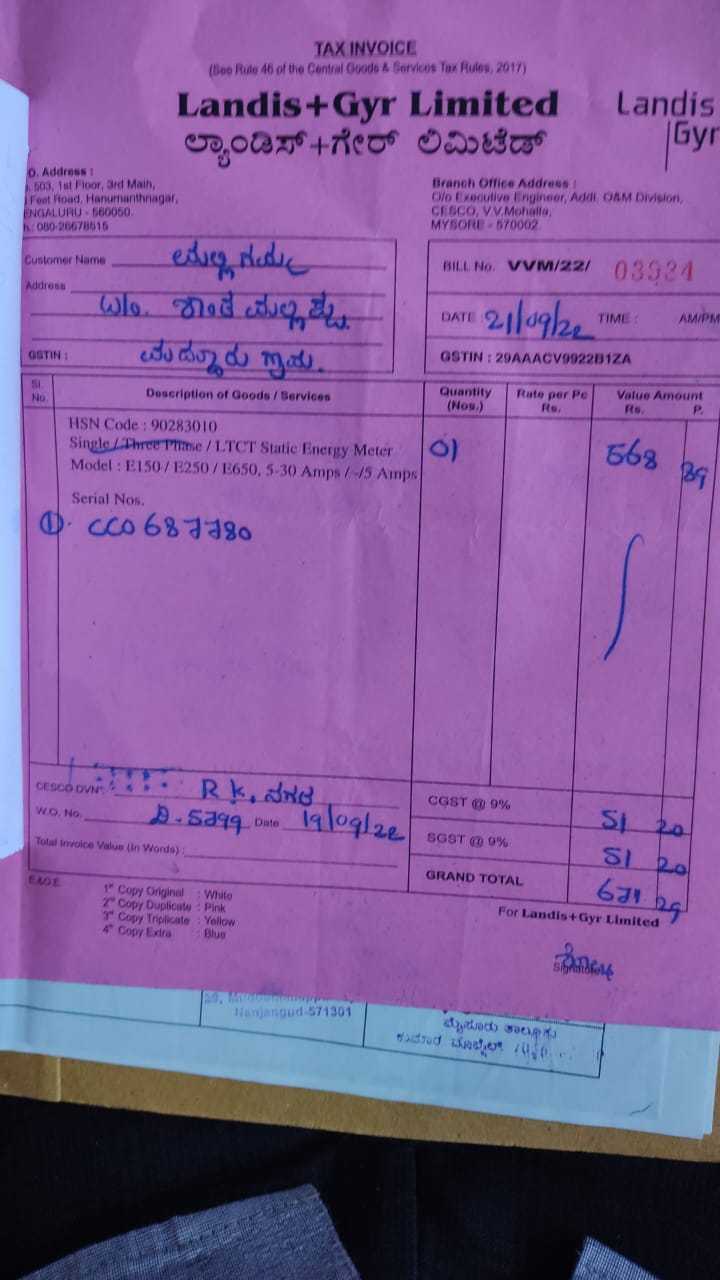 TAX INVOICE
(See Rule 46 of the Central Goods & Services Tax Rules, 2017)
Landis+Gyr Limited
ಲ್ಯಾಂಡಿಸ್+ಗೇರ್ ಲಿಮಿಟೆಡ್
Landis
Gyr
O. Address :
503, 1st Floor, 3rd Main,
Feet Road, Hanumanthnagar,
ENGALURU - 560050.
080-26678515
Branch Office Address :
O/o Executive Engineer, Addl. O&M Division,
CESCO, V.V.Mohalla,
MYSORE - 570002
Customer Name
Address
W/o.
GSTIN :
BILL No. VVM/22/ 03934
DATE : 21/09/22 TIME : AM/PM
GSTIN : 29AAACV9922B1ZA
Sl. No. Description of Goods / Services Quantity (Nos.) Rate per Pc Rs. Value Amount Rs. P.
HSN Code : 90283010
Single / Three Phase / LTCT Static Energy Meter 01 568 89
Model : E150 / E250 / E650, 5-30 Amps / -/5 Amps
Serial Nos.
① CC0687780
CESCO DVN : R K. ನಗರ
W.O. No. D-5799 Date 19/09/22
Total Invoice Value (In Words) :
CGST @ 9% 51 20
SGST @ 9% 51 20
GRAND TOTAL 671 29
E.&O.E.
1st Copy Original : White
2nd Copy Duplicate : Pink
3rd Copy Triplicate : Yellow
4th Copy Extra : Blue
For Landis+Gyr Limited
Nanjangud-571301
ಮೈಸೂರು ತಾಲ್ಲೂಕು